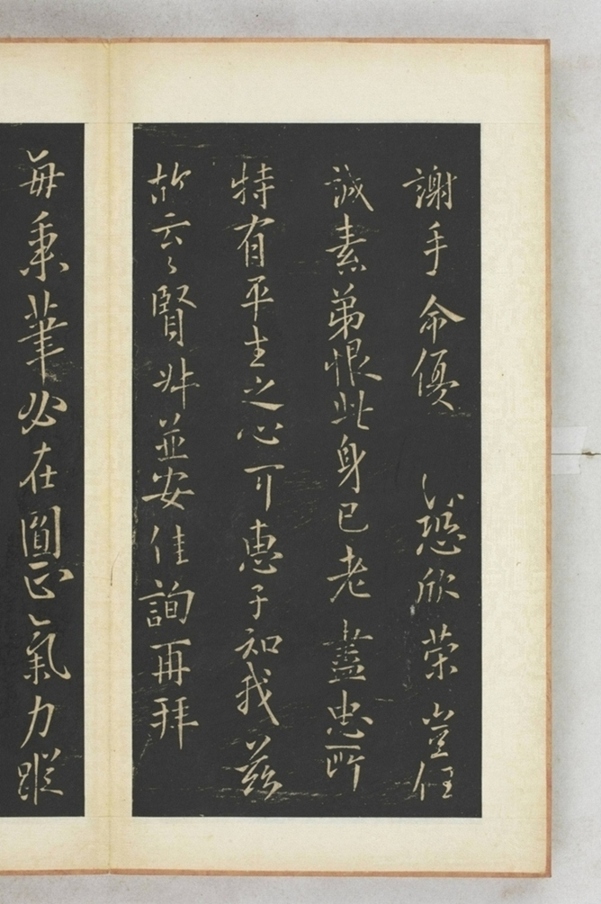 謝手命優欣荣豈任
誠素弟恨此身已老盡忠所
特有平生之心可惠子知我茲
故云々賢並安佳詢再拜
每秉筆必在圓正氣力蹤